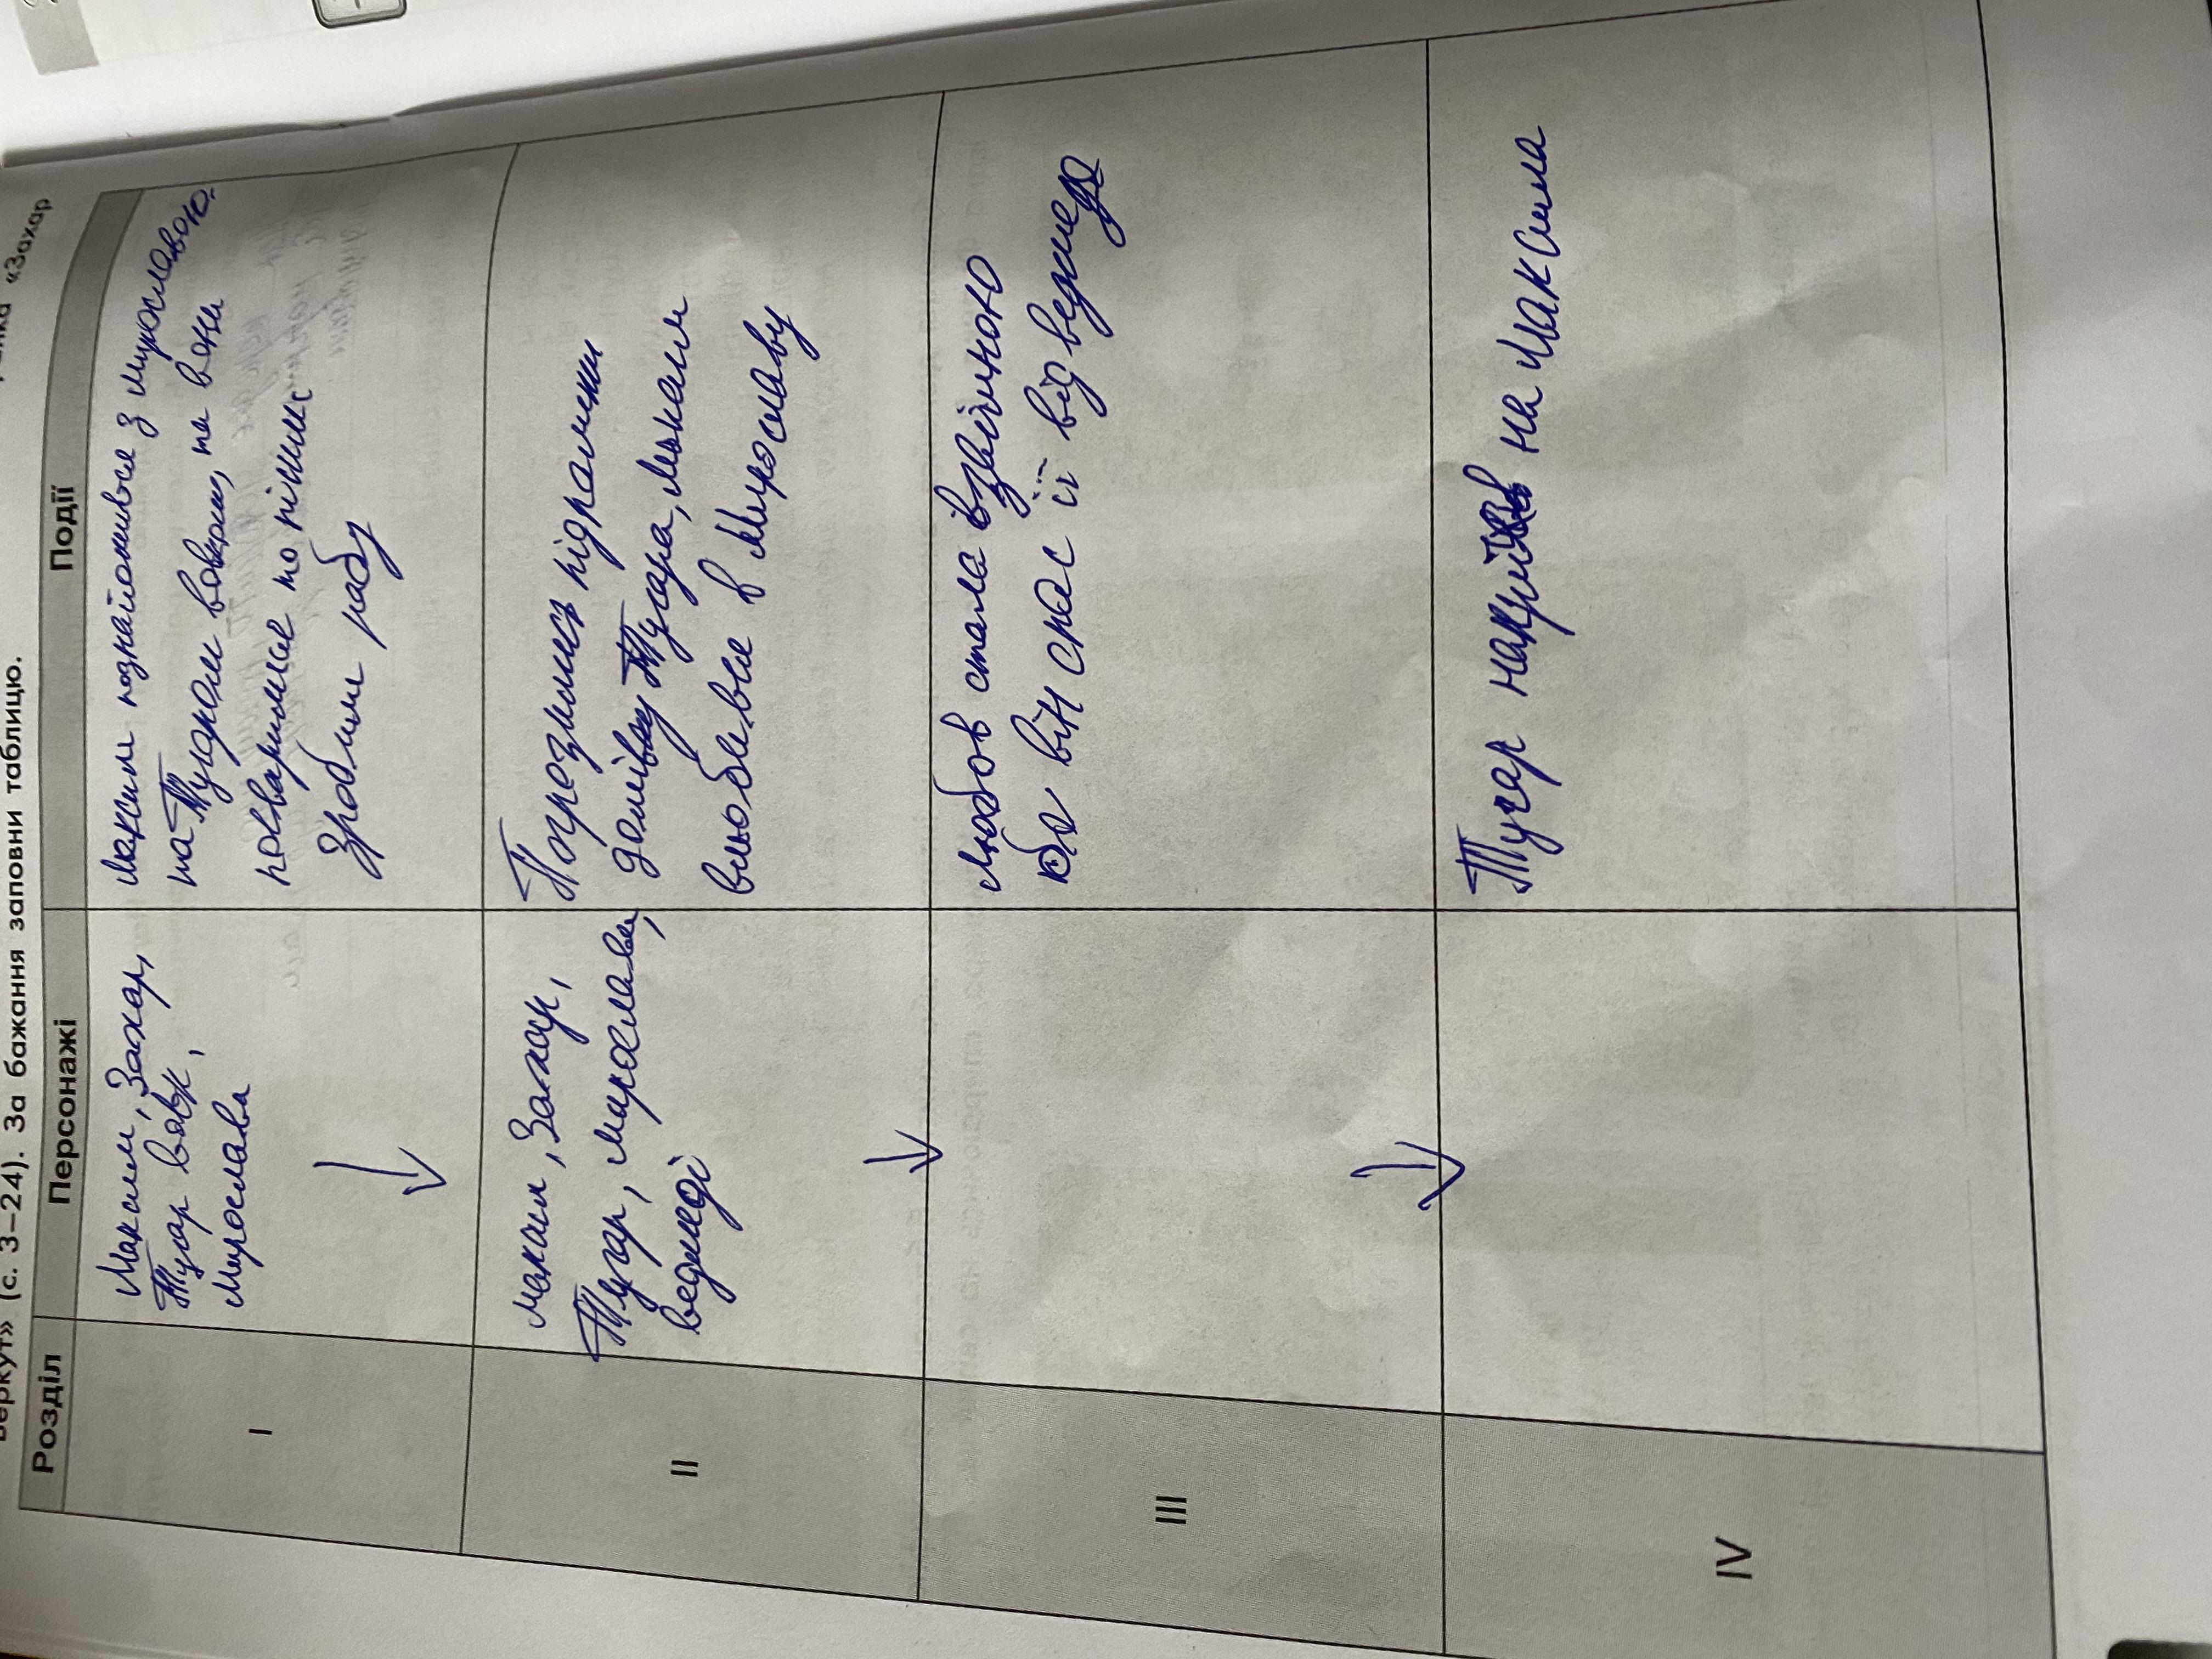 «Захар
Беркут» (с. 3–24). За бажання заповни таблицю.
Розділ
Персонажі
Події
I
Максим, Захар,
Тугар вовк,
Мирослава
Максим познайомився з мирославою
та Тугаром вовком, та вони
посварились по різних
Зробили раду
II
максим, Захар,
Тугар, мирослава,
ведмеді
підрамки
домівку Тугара, максим
влюбився в Мирославу
III
Любов стала взаїмною
бо він спас її від ведмедя
IV
Тугар на Максима